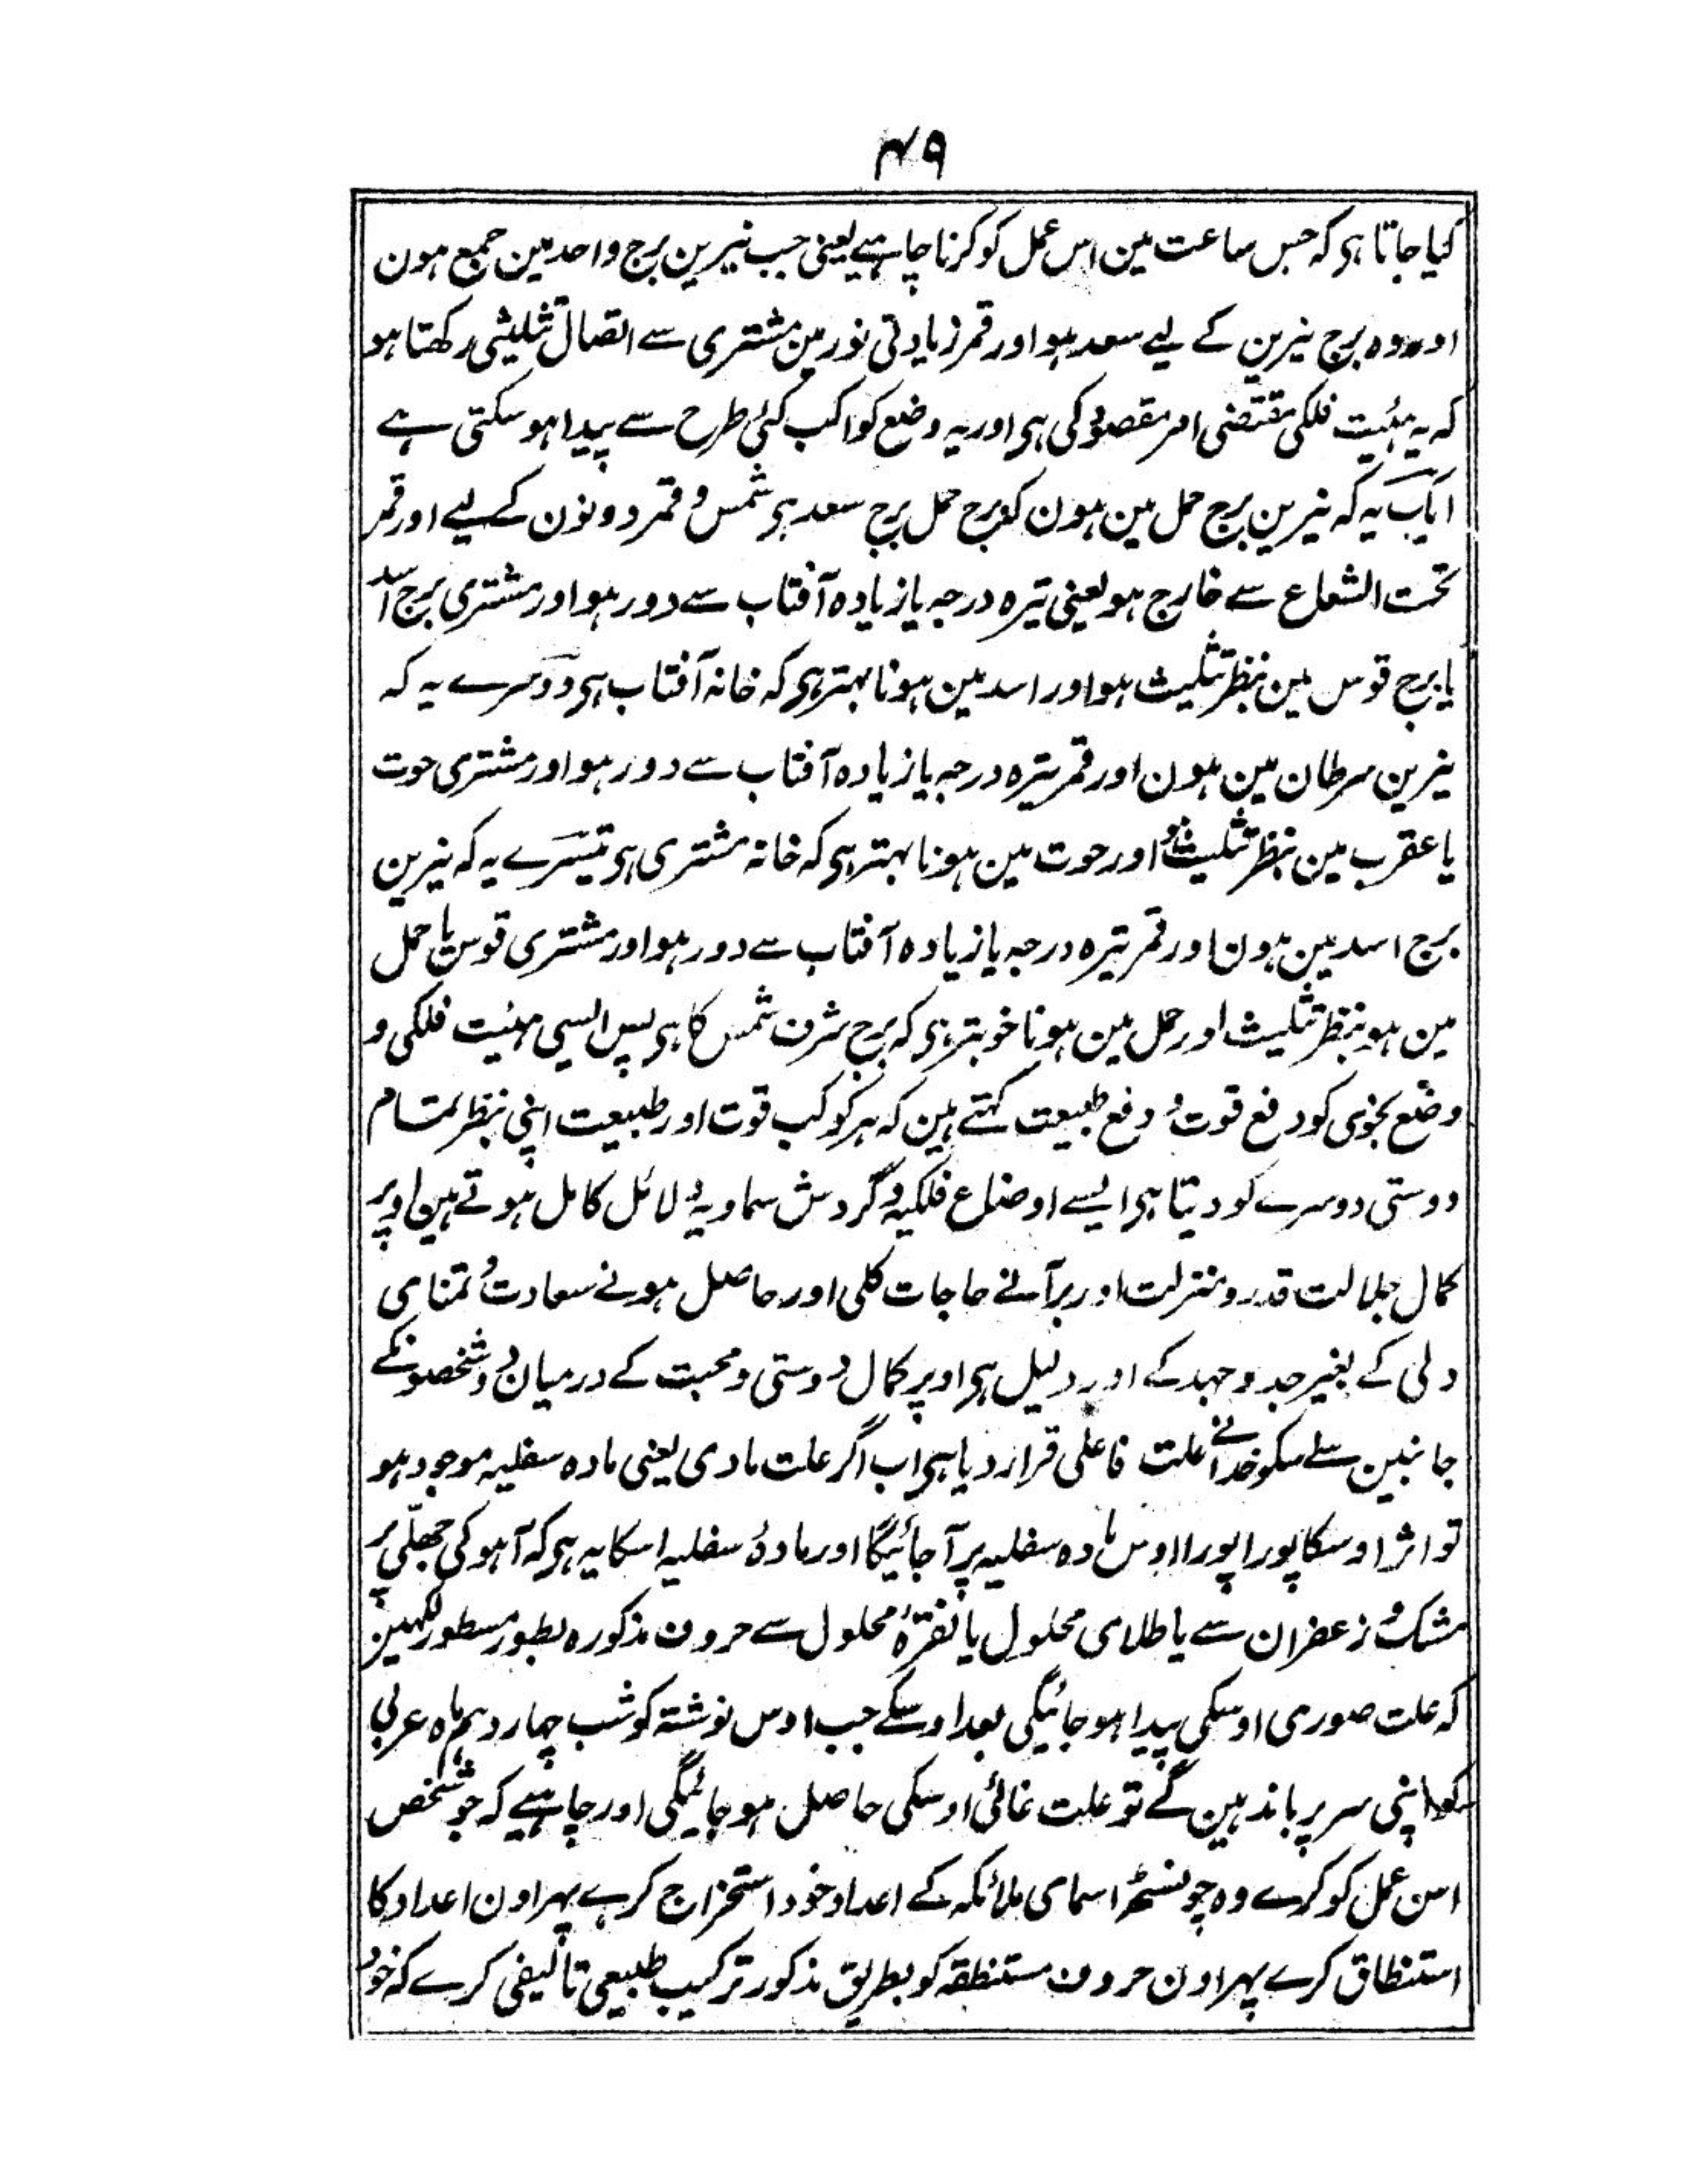 ۴۹
کیا جاتا ہی کہ جس ساعت مین اس عمل کو کرنا چاہیے یعنی جب نیرین برج واحد مین جمع ہون
اور وہ برج نیرین کے لیے سعد ہو اور قمر زیادتی نور مین مشتری سے اتصال تثلیثی رکھتا ہو
کہ یہ ہیئت فلکی مقتضی امر مقصود کی ہی اور یہ وضع کواکب کئی طرح سے پیدا ہو سکتی ہے
ایک یہ کہ نیرین برج حمل مین ہون کہ برج حمل برج سعد ہی شمس و قمر دونون کے لیے اور قمر
تحت الشعاع سے خارج ہو یعنی تیرہ درجہ یا زیادہ آفتاب سے دور ہو اور مشتری برج اسد
یا برج قوس مین بنظر تثلیث ہو اور اسد مین ہونا بہتر ہی کہ خانہ آفتاب ہی دوسرے یہ کہ
نیرین سرطان مین ہون اور قمر تیرہ درجہ یا زیادہ آفتاب سے دور ہو اور مشتری حوت
یا عقرب مین بنظر تثلیث ہو اور حوت مین ہونا بہتر ہی کہ خانہ مشتری ہی تیسرے یہ کہ نیرین
برج اسد مین ہون اور قمر تیرہ درجہ یا زیادہ آفتاب سے دور ہو اور مشتری قوس یا حمل
مین ہو بنظر تثلیث اور حمل مین ہونا خوبتر ہی کہ برج شرف شمس کا ہی پس ایسی ہیئت فلکی و
وضع نجومی کو دفع قوت و دفع طبیعت کہتے ہین کہ ہر کوکب قوت اور طبیعت اپنی بنظر تمام
دوستی دوسرے کو دیتا ہی ایسے اوضاع فلکیہ و گردش سماویہ دلائل کامل ہوتے ہین اوپر
کمال جلالت قدر و منزلت اور برآنے حاجات کلی اور حاصل ہونے سعادت و تمنای
دلی کے بغیر جد و جہد کے اور دلیل ہی اوپر کمال دوستی و محبت کے درمیان دو شخصونکے
جانبین سے اسکو خدا نے علت فاعلی قرار دیا ہی اب اگر علت مادی یعنی مادہ سفلیہ موجود ہو
تو اثر اوسکا پورا پورا اوس مادہ سفلیہ پر آ جائیگا اور مادۂ سفلیہ اسکا یہ ہی کہ آہو کی جھلّی پر
مشک و زعفران سے یا طلای محلول یا نقرۂ محلول سے حروف مذکورہ بطور مسطور لکھین
کہ علت صوری اوسکی پیدا ہو جائیگی بعد اوسکے جب اوس نوشتہ کو شب چہاردہم ماہ عربی
کو اپنی سر پر باندہین گے تو علت غائی اوسکی حاصل ہو جائیگی اور چاہیے کہ جو شخص
اس عمل کو کرے وہ چونسٹھ اسمای ملائکہ کے اعداد خود استخراج کرے پہر اون اعداد کا
استنطاق کرے پہر اون حروف مستنطقہ کو بطریق مذکور ترکیب طبیعی تالیفی کرے کہ خود